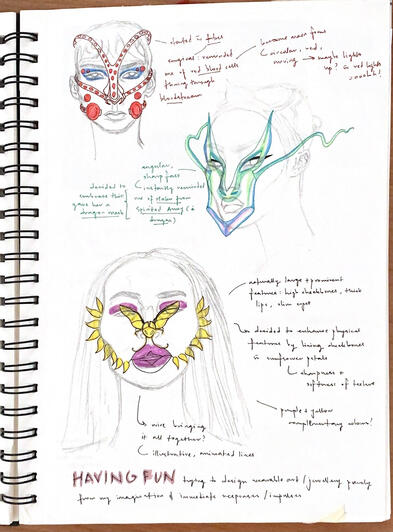 started w futon
surgeons, reminded
me of red blood cells
flowing through
bloodstream
become main focus
circular, red,
moving → maybe lights
up? w red lights
ooohh!
angular,
sharp face
instantly reminded
me of Haku from
Spirited Away (a
dragon)
decided to
embrace this,
gave her a
dragon mask
naturally large + prominent
features: high cheekbones, thick
lips, slim eyes
decided to enhance physical
features by lining cheekbones
w sunflower petals
sharpness +
softness of texture
purple + yellow
complementary colours!
wire bringing
it all together?
illustrative, animated lines
HAVING FUN trying to design wearable art / jewellery purely
from my imagination & immediate responses / impulses